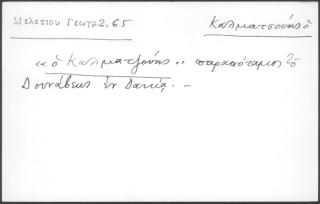 Μελετίου Γεωγρ. 2, 65
Καλματσούης ὁ
«ὁ Καλματζούης,, παραπόταμος τοῦ
Δουνάβεως ἐν Δακίᾳ. –